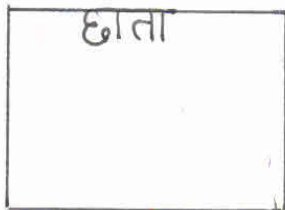 छाता